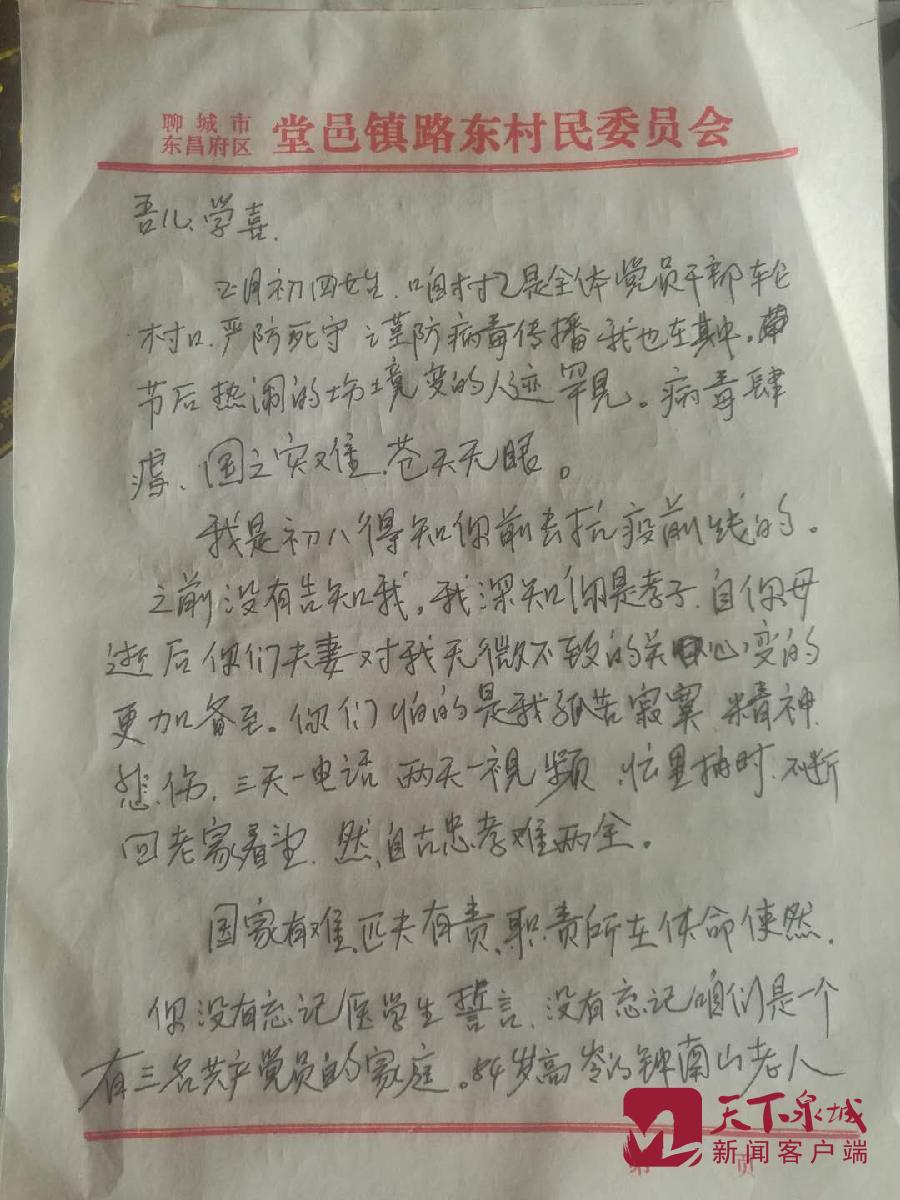 聊城市
东昌府区
堂邑镇路东村民委员会
吾儿、学喜.
正月初四始.咱村already是全体党员干部轮
村口.严防死守谨防病毒传播我也在其中.
节后热闹的场境变的人迹罕见。病毒肆
虐、国之灾难.苍天无眼。
我是初八得知你前去抗疫前线的.
之前没有告知我.我深知你是孝子.自你母
逝后你们夫妻对我无微不致的关心变的
更加备至.你们怕的是我孤苦寂寞.精神
悲伤.三天一电话 两天一視频.忙里抽时.不断
回老家看望.然自古忠孝难两全。
国家有难.匹夫有责.职责所在使命使然.
你没有忘记医学生誓言.没有忘记咱们是一个
有三名共产党员的家庭。84岁高岺的钟南山老人
天下泉城
新闻客户端
第 页